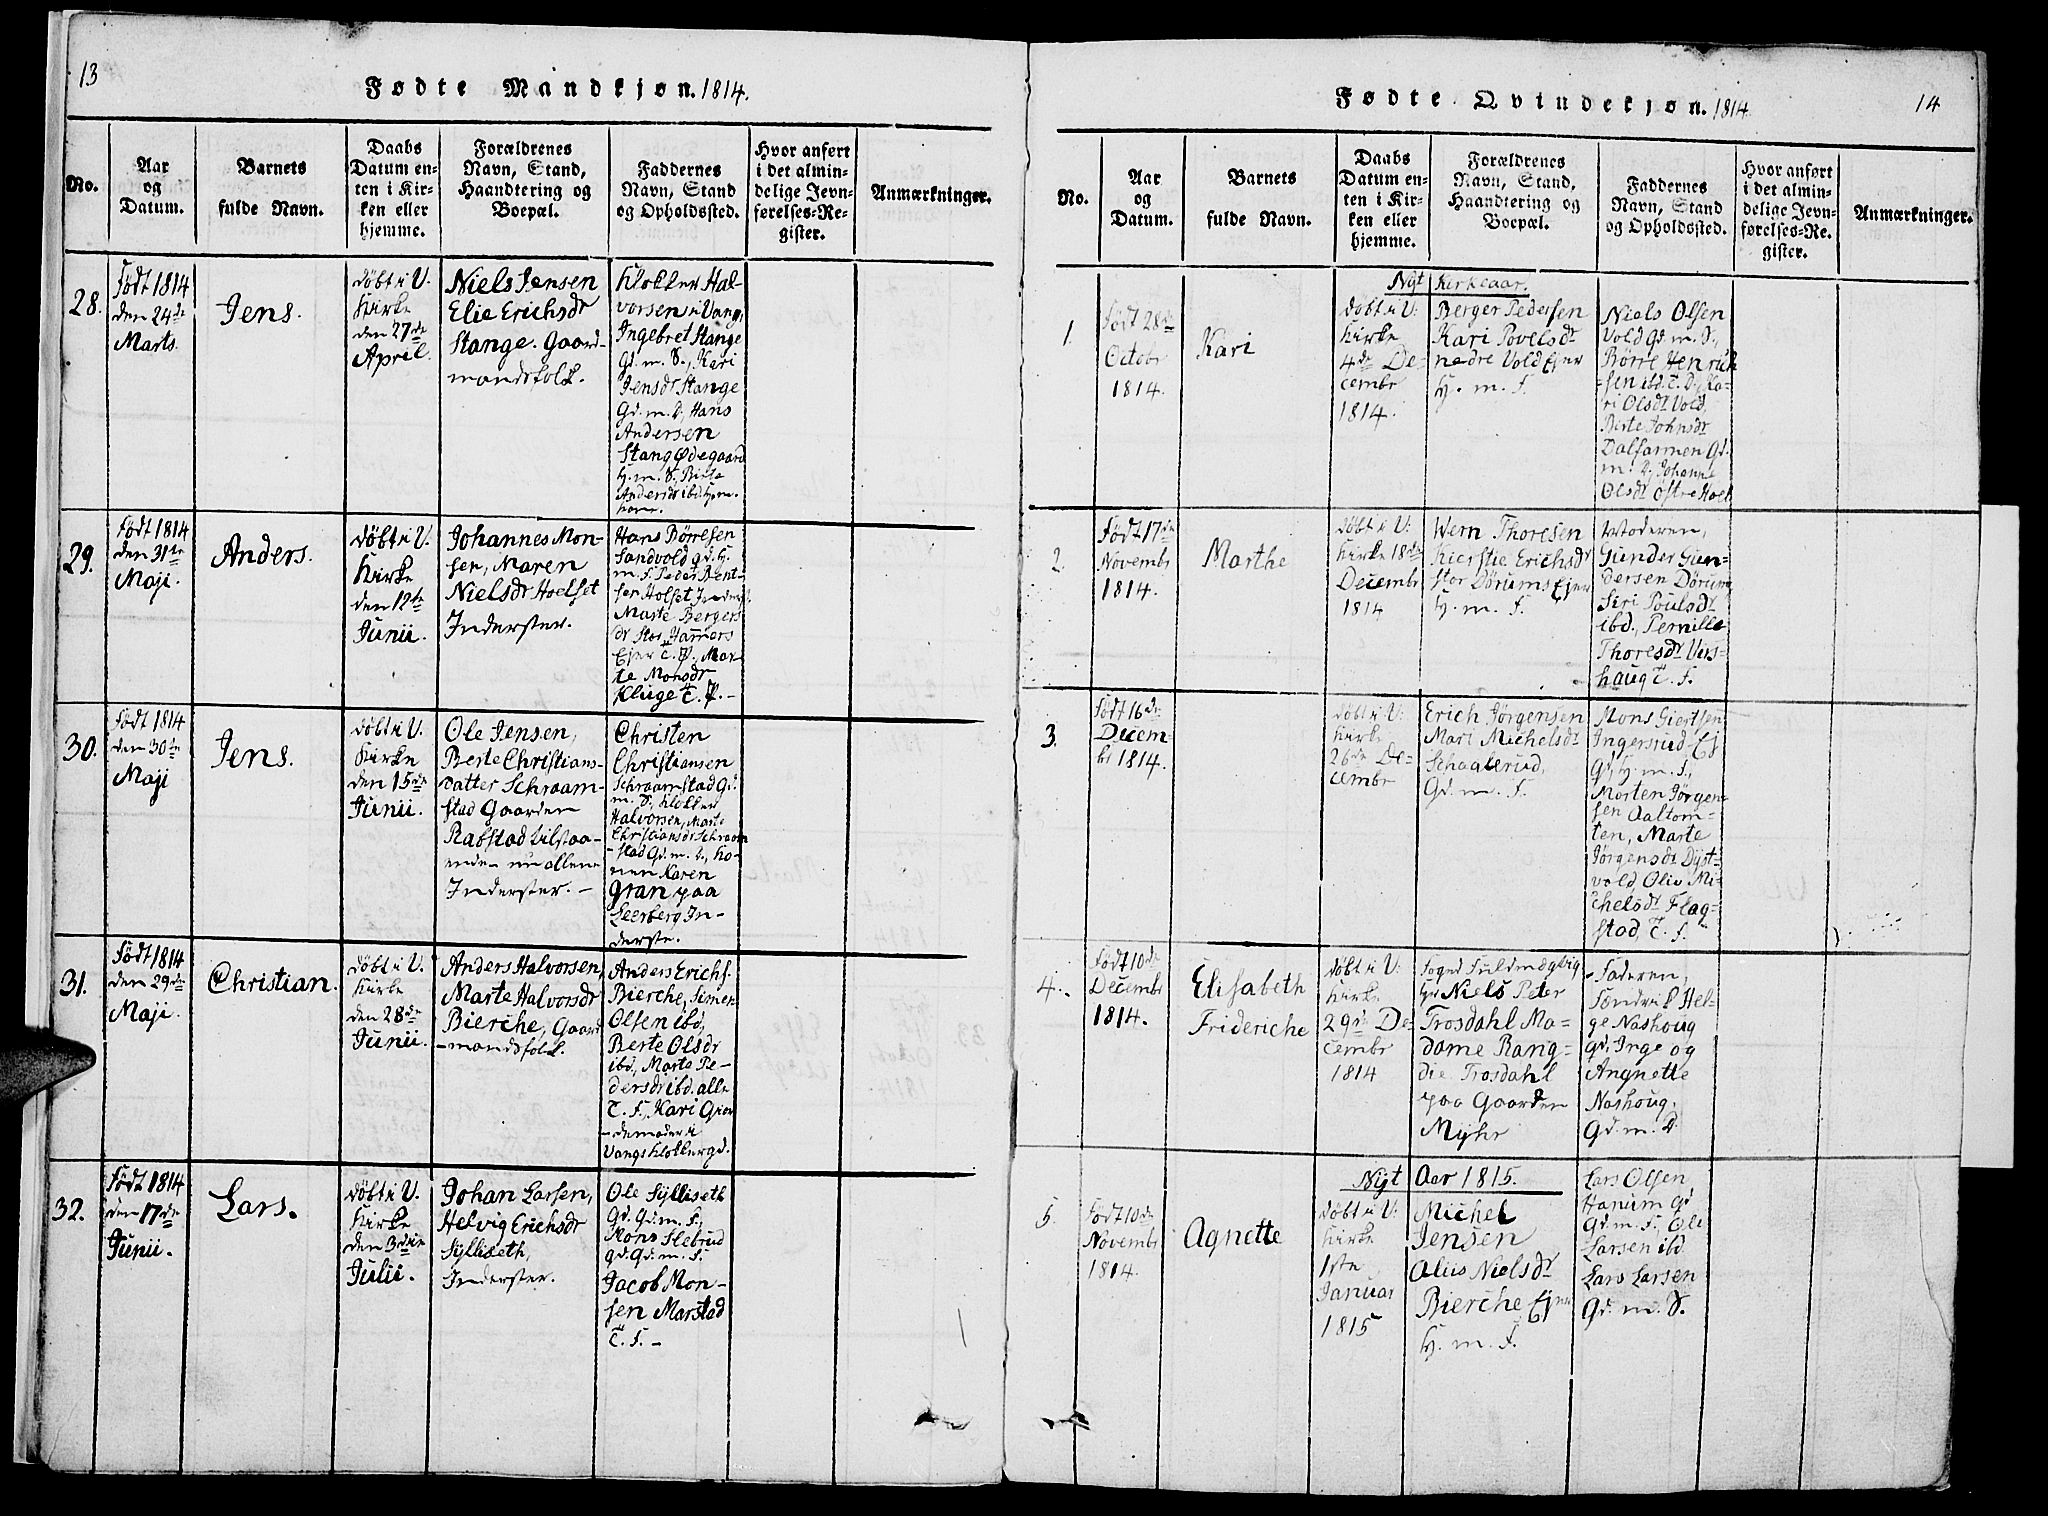 13
Fødte Mandkjøn. 1814.
No.
Aar
og
Datum.
Barnets
fulde Navn.
Daabs
Datum en-
ten i Kir-
ken eller
hjemme.
Forældrenes
Navn, Stand,
Haandtering og
Boepæl.
Faddernes
Navn, Stand
og Opholdssted.
Hvor anført
i det almin-
delige Jevn-
førelses-Re-
gister.
Anmærkninger.
28.
Født 1814
den 24de
Marts.
Jens.
døbt i V.
Kirke
den 27de
April.
Niels Jensen
Elie Erichsdr
Stange. Gaard-
mandsfolk.
Klokker Hal-
vorsen i Vang,
Ingebret Stange
Gd. m. S., Kari
Jensdr Stange
Gd. m. D., Hans
Andersen
Stang Ødegaard
H. m. S., Birte
Andersdr ibd. H. m.
29.
Født 1814
den 31te
Maji.
Anders.
døbt i V.
Kirke
den 12te
Junii.
Johannes Mon-
sen, Maren
Nielsdr Hoelset
Inderster.
Hans Børresen
Sandvold gd. H
m. S. Peder Bent-
sen Holset Inderst.
Marte Bergers
dr Stor Hammers
Ejer T. P., Mar-
te Monsdr
Kluge T. P. -
30.
Født 1814
den 30te
Maji
Jens.
døbt i V.
Kirke
den 15de
Junii.
Ole Jensen,
Berte Christians-
datter Schraam-
stad Gaarden
Rabstad tilstaa-
ende - nu allene
Inderster. -
Christen
Christiansen
Schraamstad Gd.
m. S., Klokker
Halvorsen, Marte
Christiansdr Schraam
-stad Gd. m. D., Ko-
nen Karen
Gran paa
Leerberg In-
derste.
31.
Født 1814
den 29de
Maji.
Christian.
døbt i V.
Kirke
den 28de
Junii.
Anders Halvorsen,
Marte Halvorsdr
Bierche, Gaard
-mandsfolk.
Anders Erichs.
Bierche, Simen
Olsen ibd,
Berte Olsdr
ibd, Marte Pe-
dersdr ibd. alle
T. F., Kari Gior
-demoder i
Vangs Klokkergd.
32.
Født 1814
den 17de
Junii.
Lars.
døbt i V.
Kirke
den 3die
Julii.
Johan Larsen,
Helvig Erichsdr
Sylliseth,
Inderster.
Ole Sylliseth
Gd. Gd. m. F.,
Mons Slebrud
gd. Gd. m. F.
Jacob Mon-
sen Marstad
T. F. -
Fødte Qvindekjøn. 1814
14
No.
Aar
og
Datum.
Barnets
fulde Navn.
Daabs
Datum en-
ten i Kir-
ken eller
hjemme.
Forældrenes
Navn, Stand,
Haandtering og
Boepæl.
Faddernes
Navn, Stand
og Opholdssted.
Hvor anført
i det almin-
delige Jevn-
førelses-Re-
gister.
Anmærkninger.
Nyt Kirkeaar.
1.
Født 28de
Octobr
1814.
Kari
døbt i V:
Kirke
4de De-
cembr
1814.
Berger Pedersen
Kari Povelsdr
nedre Vold Ejer
H. m. F.
Niels Olsen
Vold Gd. m. S.,
Børre Henrich
-sen ibd. T. D., Ka-
ri Olsdr Vold,
Berte Johnsdr
Dalfarmen Gd.
m. D., Johanne
Olsdr Østre Hoel
2.
Født 17de
Novembr
1814.
Marthe
døbt i V:
Kirke 18de
Decembr
1814
Wern Thoresen
Kierstie Erichsdr
Stor Dørums Ejer
H. m. F.
Moderen,
Gunder Gun-
dersen Dørum,
Siri Poulsdr
ibd., Pernille
Thoresdr Vers-
haug T. F.
3.
Født 16de
Decem-
br 1814.
døbt i V:
Kirke
26de De-
cembr
Erich Jørgensen
Mari Michelsdr
Schaalerud,
Gd. m. F.
Mons Giertsen
Ingersrud Ej
Gd. H. m. F.,
Morten Jørgen-
sen Aaltom-
ten, Marte
Jørgensdr Dyst-
vold, Oliv Mi-
chelsdr Flag-
stad, T. F.
4.
Født 10de
Decembr
1814.
Elisabeth
Frideriche
døbt i V:
Kirke
29de De-
cembr
1814
Foged Fuldmægtig
Hr Niels Peter
Trosdahl Ma-
dame Rang-
die Trosdahl
paa Gaarden
Myhr
Faderen,
Fændrik Hel-
ge Nashoug
gd. Inge og
Angnette
Nashoug,
Gd. m. D.
Nyt Aar 1815.
5.
Født 10de
Novembr
1814.
Agnette
døbt i V:
Kirke
1ste
Januar
1815
Michel
Jensen
Aliis Nielsdr
Bierche Ejer
H. m. F.
Lars Olsen
Hanum Gd
Gd. m. F. Ole
Larsen ibd
Lars Larsen
Gd. m. S.